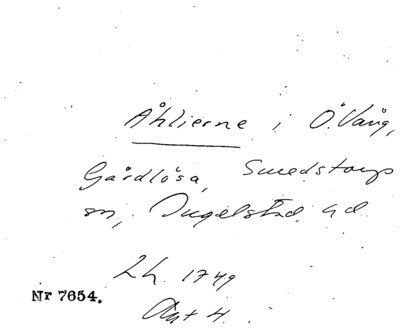 Åhlierne i Ö. Vång,
Gårdlösa, Smedstorps
sn, Ingelstad hd
Lh. 1749
Akt 4.
Nr 7654.